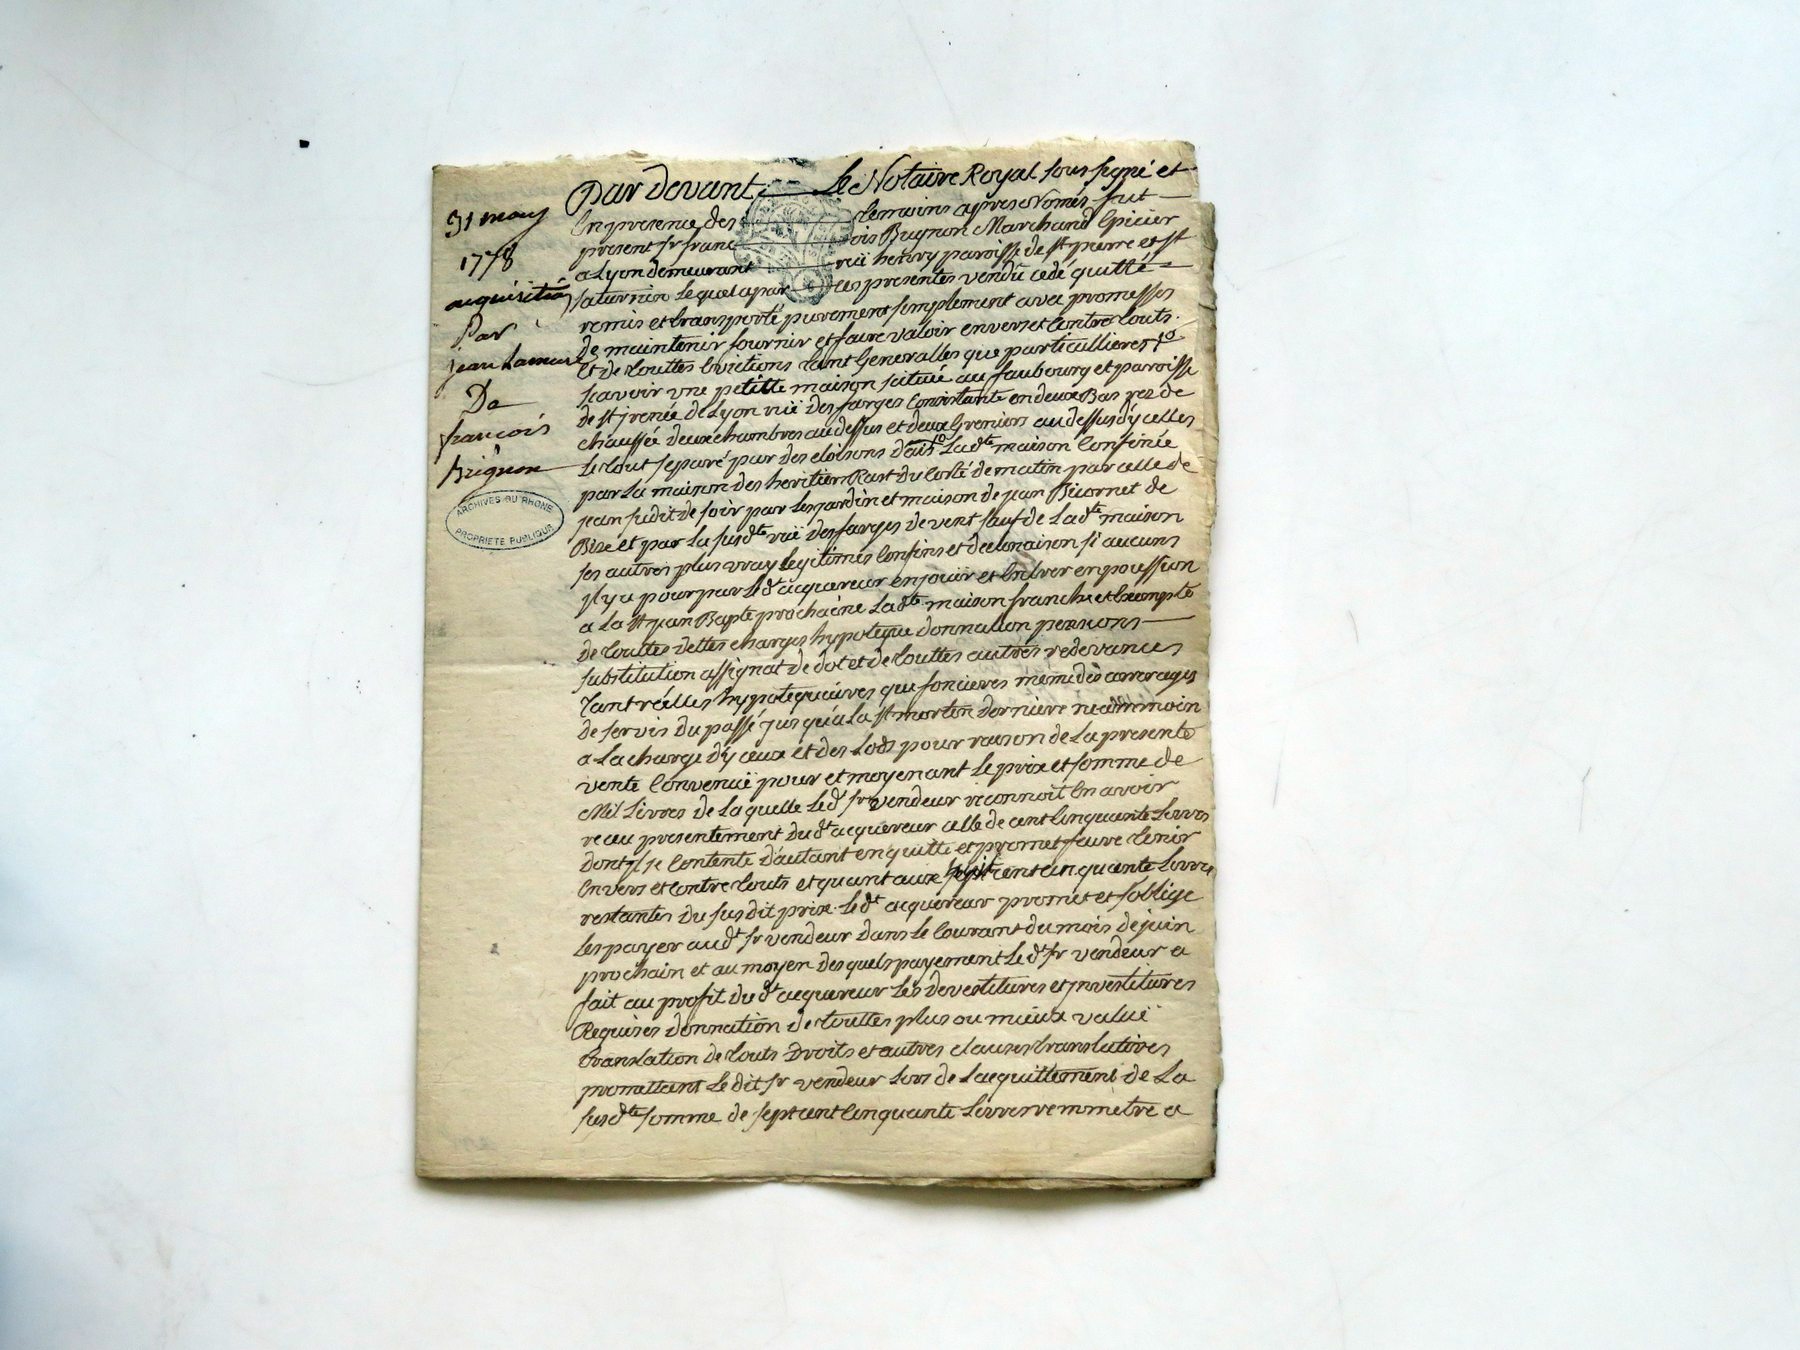 31 may
1778
acquisition
Par
jean Lamure
De
françois
Brignon
ARCHIVES DU RHONE
PROPRIETE PUBLIQUE
Par Devant Le Notaire Royal sous signé et
En presence des temoins apres Només fut
present sr francois Brignon Marchand Epicier
a Lyon demeurant rüe henry paroisse de st pierre et st
saturnin Lequel a par ces presentes vendü cedé quitté
remis et transporté purement simplement avec promesses
de maintenir fournir et faire valoir envers et Contre touts
et de touttes Evictions tant Generalles que particullieres
scavoir une petitte maison scituée au faubourg et paroisse
de st jrenée de Lyon rüe des farges Consistante en deux Bas rez de
chaussée deux chambres au dessus et deux Greniers au dessus d'ycelles
Le tout separé par des cloisons d'ais La dte maison Confinée
par La maison des heritiers Rast du Cotté de matin par celle de
jean judit de soir par Les jardin et maison de jean Bicornet de
Bize et par La susdte rüe des farges de vent sauf de La dte maison
ses autres plus vray Legitimes Confins et declinaison si aucuns
jl y a pour par Le dt acquereur en jouir et Entrer en possession
a La st jean Bapte prochaine La dte maison franche et Exempte
de touttes dettes charges hypoteque donnation pensions
substitution assignat de dot et de touttes autres redevances
tant reelles hypotequaires que foncieres même des arrerages
de servis du passé jusqu'a La st martin derniere neadmmoin
a La charge d'y ceux et des Lods pour raison de La presente
vente Convenüe pour et moyenant Le prix et somme de
Mil Livres de La quelle Le dt sr vendeur reconnoit En avoir
receu presentement du dt acquereur celle de cent Cinquante Livres
dont jl se Contente d'autant en quitte et promet faire tenir
Envers et Contre touts et quant aux cent cinquante Livres
restantes du susdit prix Le dt acquereur promet et s'oblige
Les payer au dt sr vendeur dans Le Courant du mois de juin
prochain et au moyen des quels payement Le dt sr vendeur a
fait au profit du dt acquereur Les devestitures et jnvestitures
Requises donnation de touttes plus ou mieux value
translation de touts Droits et autres clauses translatives
promettant Le dit sr vendeur Lors de L'acquittement de La
susdte somme de sept cent Cinquante Livres remmetre a